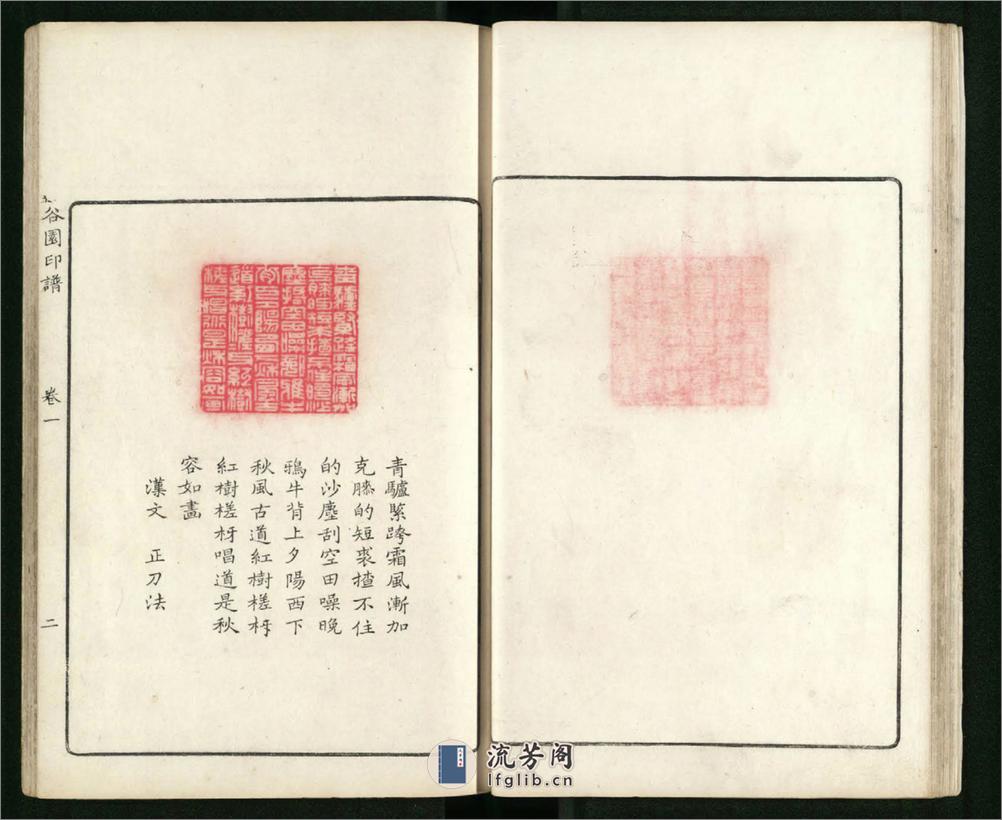 青驢緊跨霜風漸加
克膝的短裘揸不住
的沙塵刮空田噪晚
鴉牛背上夕陽西下
秋風古道紅樹槎枒
紅樹槎枒唱道是秋
容如畵
漢文 正刀法
谷園印譜
卷一
二
流芳阁
lfglib.cn